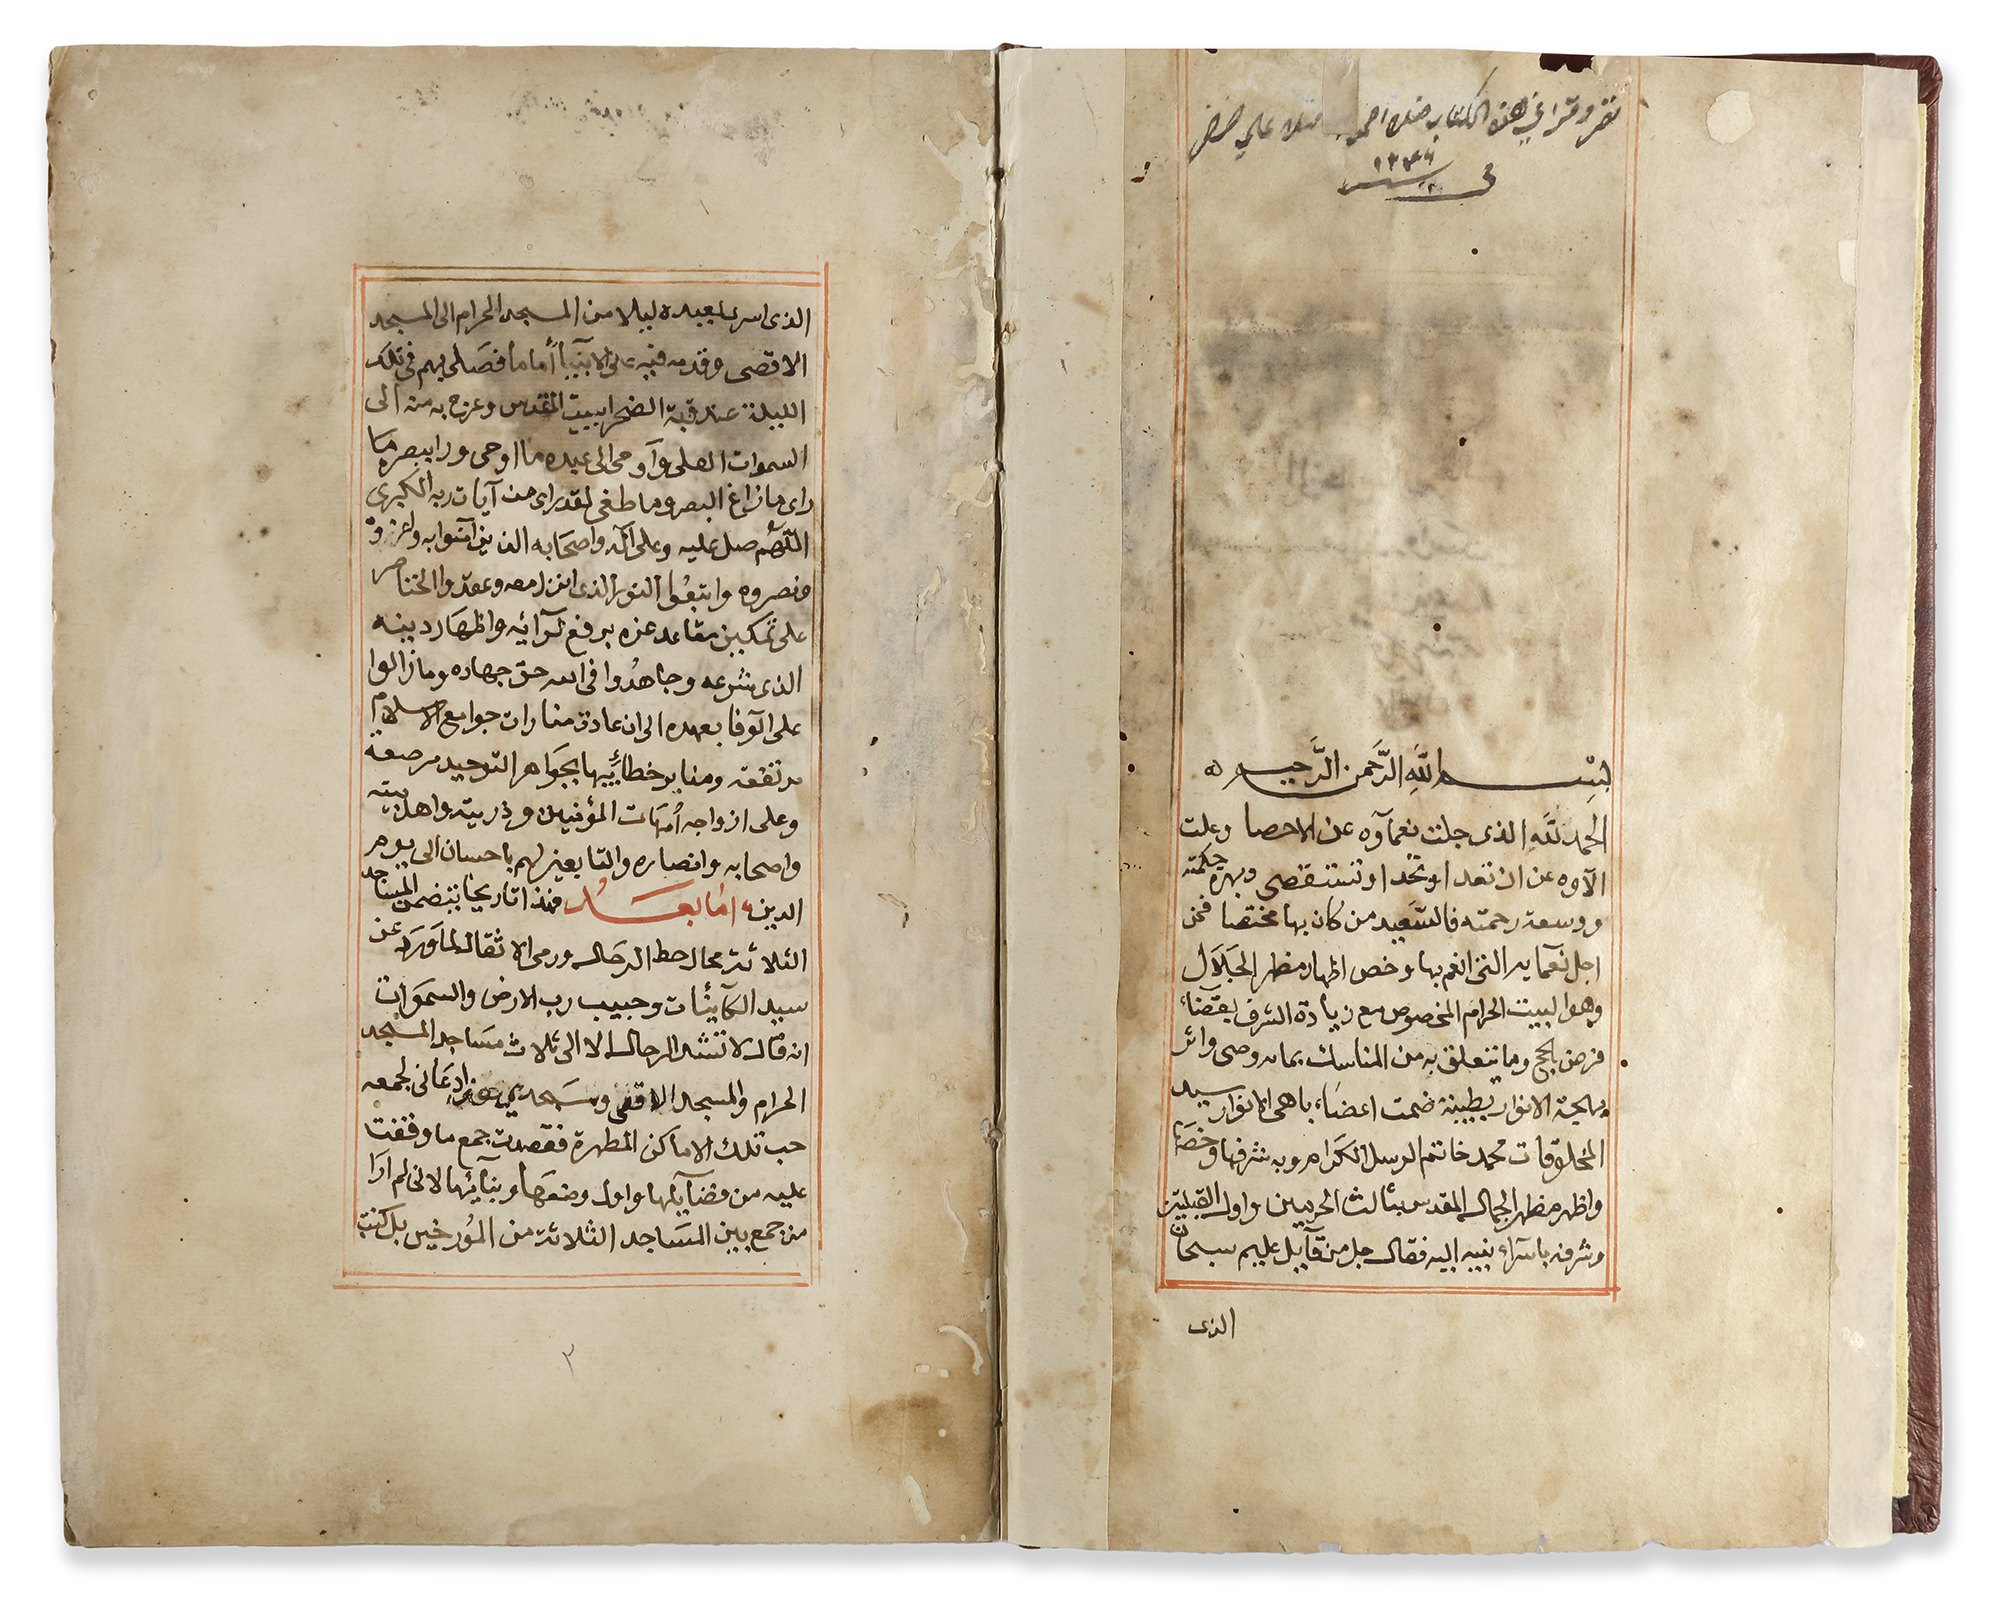 نضر وقرا في هذه الكتاب احمد علي
في سنة ١٣٣٤
بسم اللَّهِ الرَّحمن الرَّحيم
الحمد للَّه الذى جلت نعمآوه عن الاحصا وعلت
الآوه عن ان تعد او تحد او تستقصى وبهرة حكمته
ووسعة رحمته فالسَّعيد من كان بها مختصا فمن
اجل نعمايه التى انعم بها وخص اظهاره مظهر الجلال
وهو البيت الحرام المخصوص مع زيادة الشرف بقضاء
فرض الحج وما يتعلق به من المناسك بمانه وصى واثر
بهجة الانوار بطيبة ضمت اعضاء باهى الانوار سيد
المخلوقات محمد خاتم الرسل الكرام وبه شرفها وخصا
واظهر مظهر الجمال المقدس بثالث الحرمين واول القبلتين
وشرفه باسراء نبيه اليه فقال جل من قآيل عليم سبحان
الذى
الذى اسرى بعبده ليلا من المسجد الحرام الى المسجد
الاقصى وقدمه فيه على الانبيآ أماما فصَلى بهم فى تلك
الليلة عند قبة الصخرا ببيت المقدس وعرج به منه الى
السموات العلى وآوحى الى عبده ما اوحى ورا ببصره مَا
راى ما زاغ البصر وما طغى لقد راى من آيات ربه الكبرى
اللهُم صل عليه وعلى آله واصحابه الذين آمنوا به وعزروه
ونصروه واتبعُوا النور الذى انزل معه وعقدوا الخناصر
على تمكين مقاعد عزه برفع رآئيه واظهَار دينه
الذى شرعه وجاهدُوا فى الله حق جهاده وما زالوا
على الوفا بعهده الى ان عادة منارات جوامع الاسلام
مرتفعة ومنابر خطائيها بجوَاهر التوحيد مرصعة
وعلى ازواجه أمهَات المؤمنين وذريته واهل بيته
واصحابه وانصاره والتابعين لهم باحسان الى يوم
الدين اما بعَــد فهذا تاريخا يتضمن المساجد
الثلاثة محال حط الرحَال ورمى الاثقال لماوَرَد عن
سيد الكآينات وحبيب رب الارض والسموَات
انه قال لا تشد الرحال الا الى ثلاث مسَاجد المسجد
الحرام والمسجد الاقصى ومسجدي هذا دعَانى لجمعه
حب تلك الاماكن المطهرة فقصدت جمع ما وقفت
عليه من فضآيلها واول وضعهَا وبنآئها لانى لم ارَا
من جمع بين المسَاجد الثلاثة من المُورخين بل كنت
٢